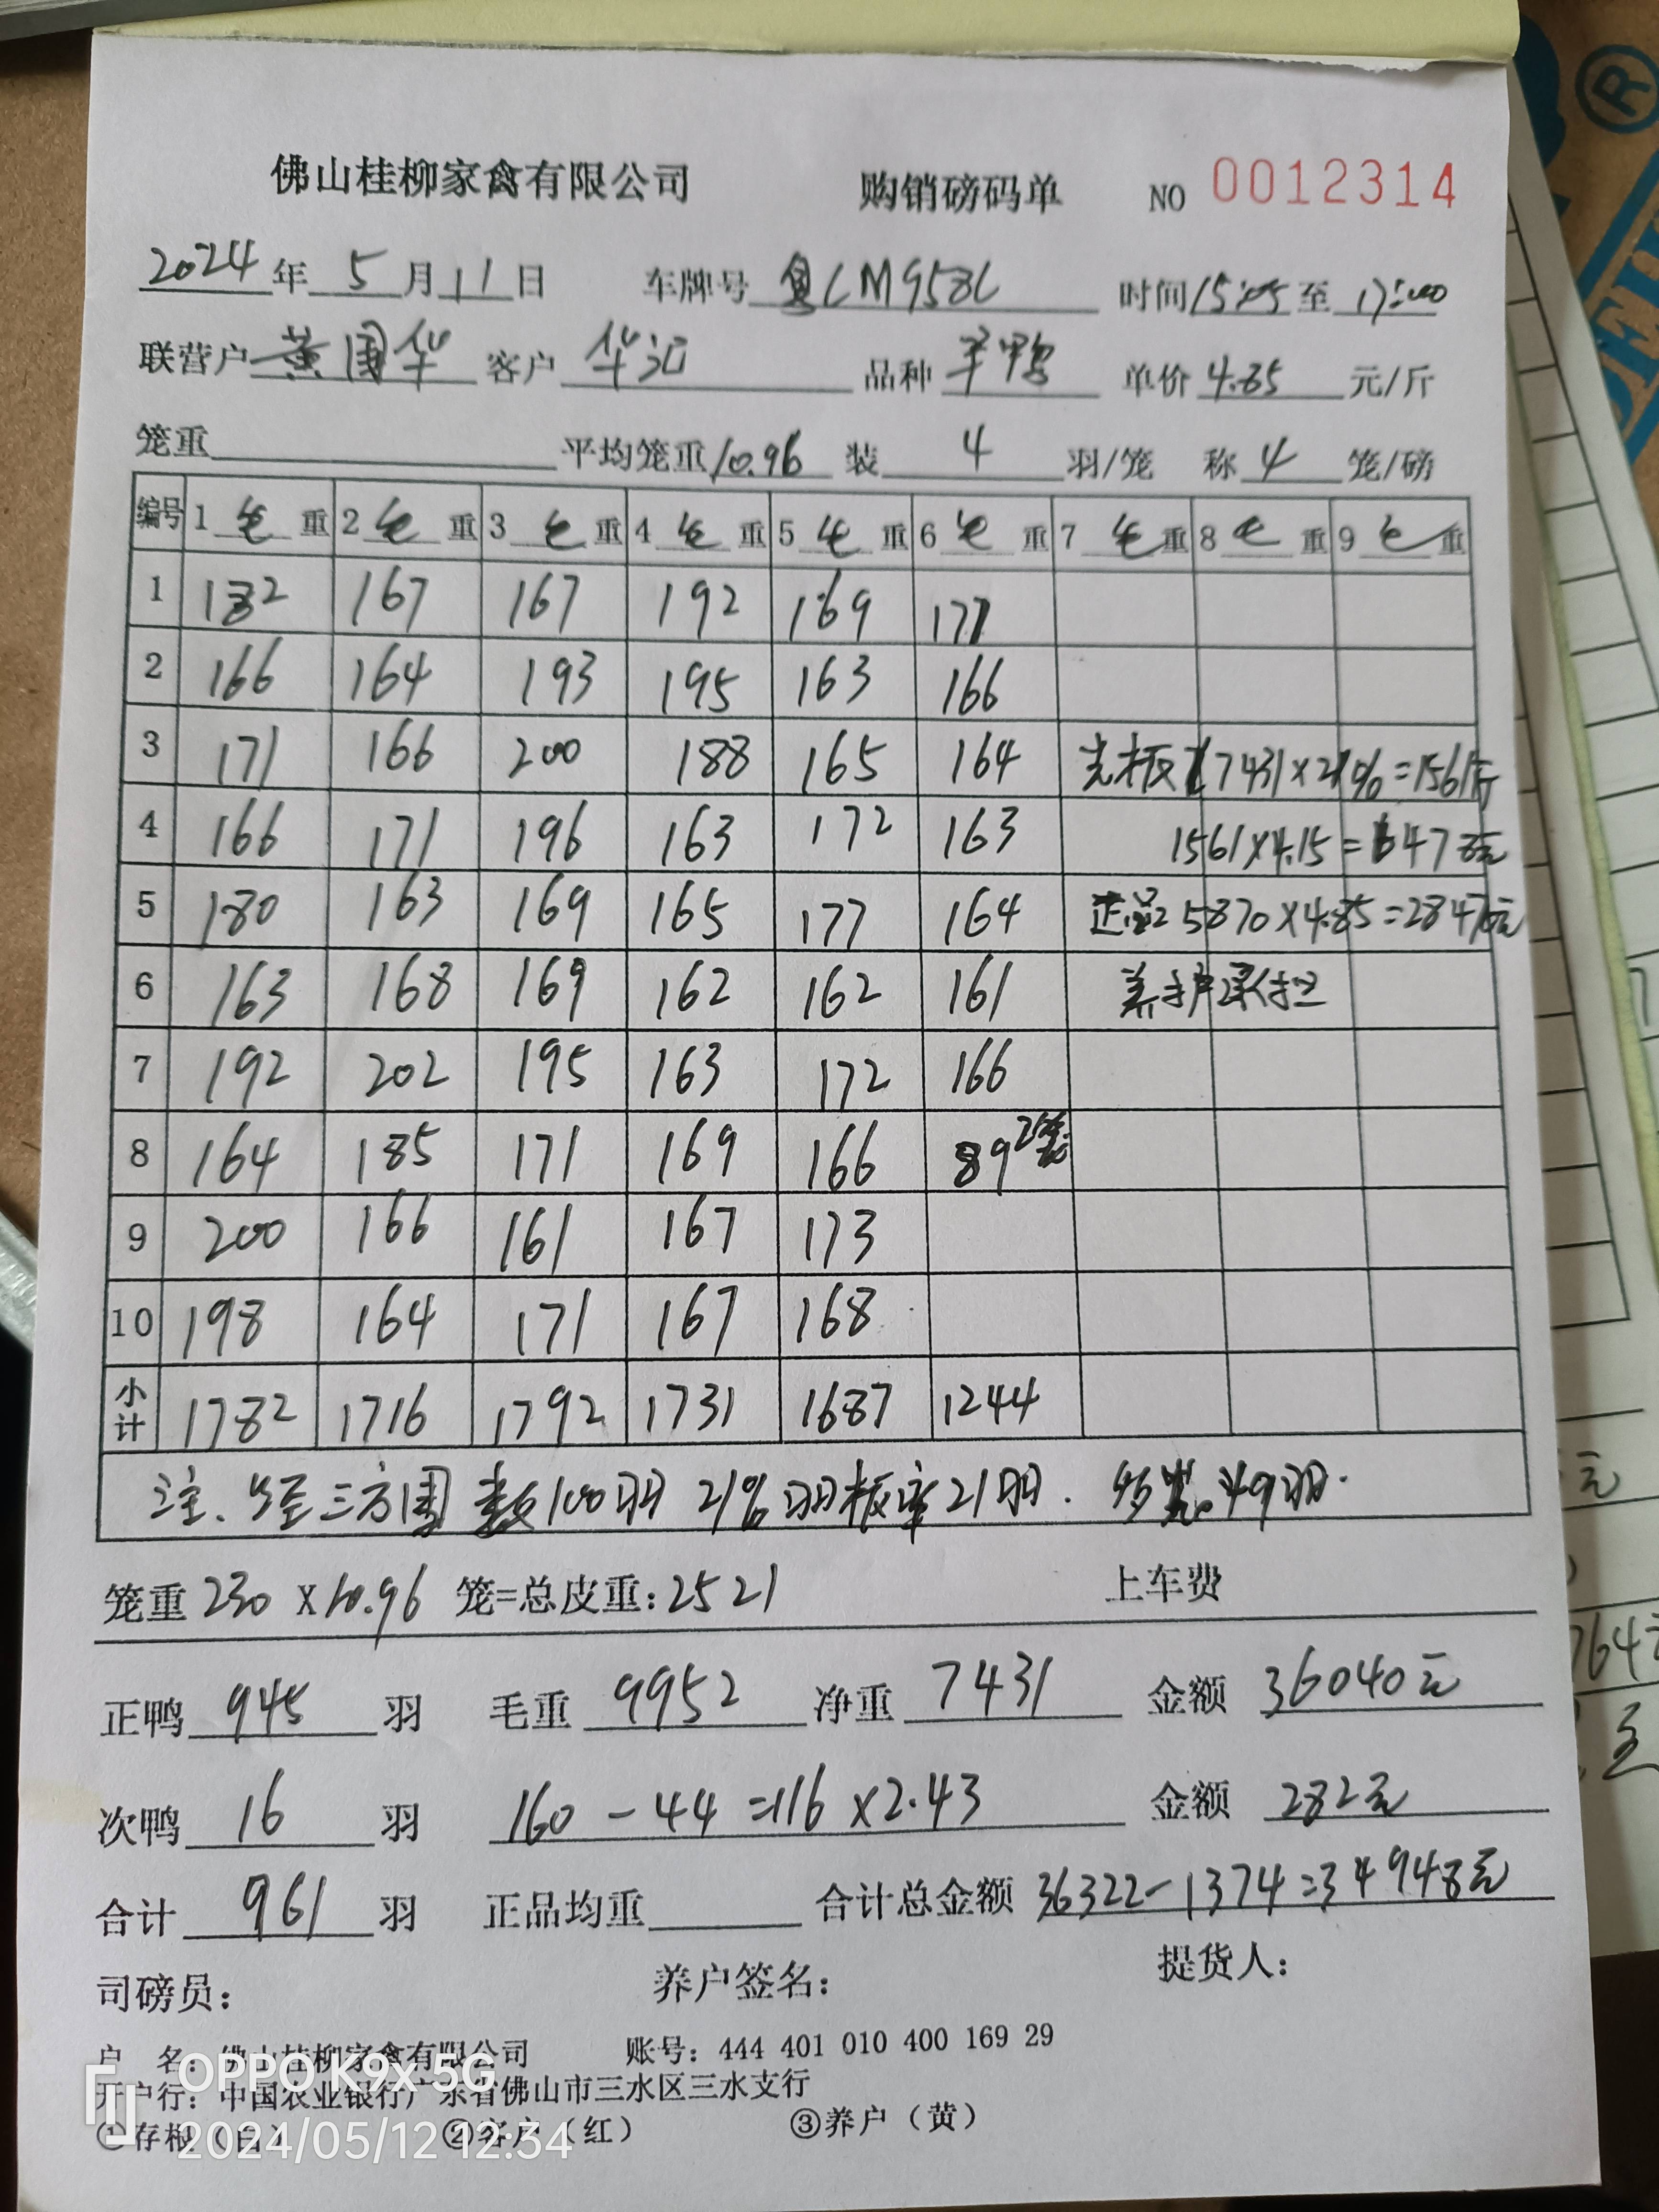 佛山桂柳家禽有限公司 购销磅码单 NO 0012314
2024年 5 月 11 日 车牌号 粤LM958L 时间 15:05 至 17:00
联营户 黄国华 客户 华记 品种 半鸭 单价 4.85 元/斤
笼重 平均笼重 10.96 装 4 羽/笼 称 4 笼/磅
编号 1 毛 重 2 毛 重 3 毛 重 4 毛 重 5 毛 重 6 毛 重 7 毛 重 8 毛 重 9 毛 重
1 182 167 167 192 169 177
2 166 164 193 195 163 166
3 171 166 200 188 165 164 光板 7431×21%=1561斤
4 166 171 196 163 172 163 1561×4.15=6478元
5 180 163 169 165 177 164 正品 5870×4.85=28470元
6 163 168 169 162 162 161 养户承担
7 192 202 195 163 172 166
8 164 185 171 169 166 89 2笼
9 200 166 161 167 173
10 198 164 171 167 168
小计 1782 1716 1792 1731 1687 1244
注、 三方围 数100羽 21% 羽板率21羽. 49羽.
笼重 230 X 10.96 笼=总皮重: 2521 上车费
正鸭 945 羽 毛重 9952 净重 7431 金额 36040元
次鸭 16 羽 160-44=116×2.43 金额 282元
合计 961 羽 正品均重 合计总金额 36322-1374=34948元
司磅员: 养户签名: 提货人:
户 名: 佛山桂柳家禽有限公司 账号: 444 401 010 400 169 29
开户行: 中国农业银行广东省佛山市三水区三水支行
①存根(白) ②客户(红) ③养户(黄)
OPPO K9x 5G
2024/05/12 12:34